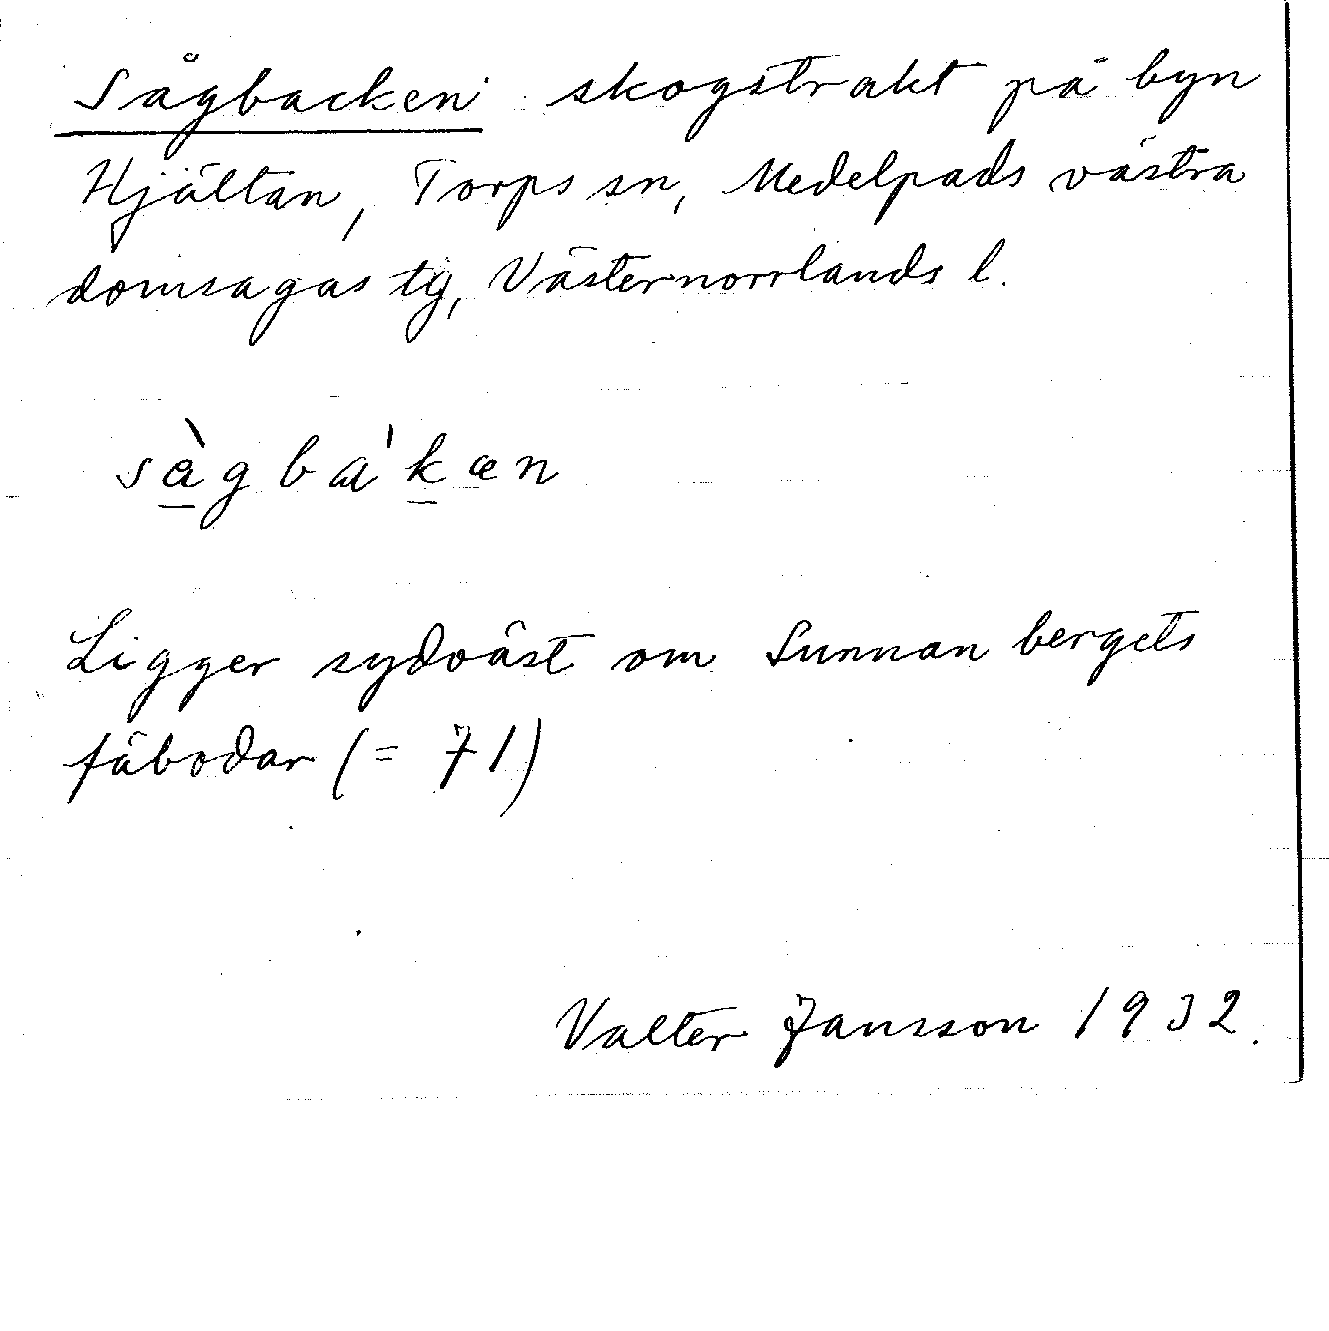 Sågbacken skogstrakt på byn
Hjältan, Torps sn, Medelpads västra
domsagas tg, Västernorrlands l.
sàgbákæn
Ligger sydväst om Sunnanbergets
fäbodar (= 71)
Valter Jansson 1932.